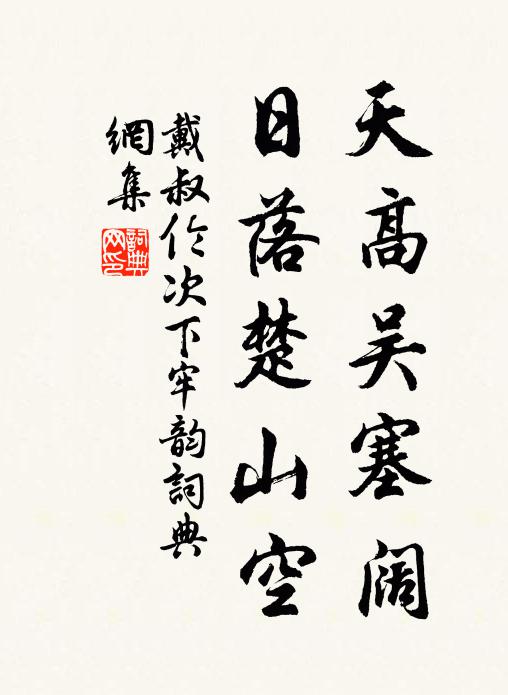 天高吴塞阔
日落楚山空
戴叔伦次下牢韵词典
網集
詞典
网印